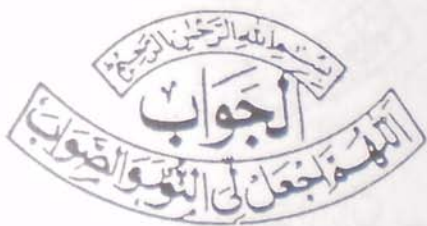 بِسْمِ اللهِ الرَّحْمٰنِ الرَّحِيْمِ
اَلْجَوَابُ
اَللّٰهُمَّ اجْعَلْ لِّىْ النُّوْرَ وَالصَّوَابَ